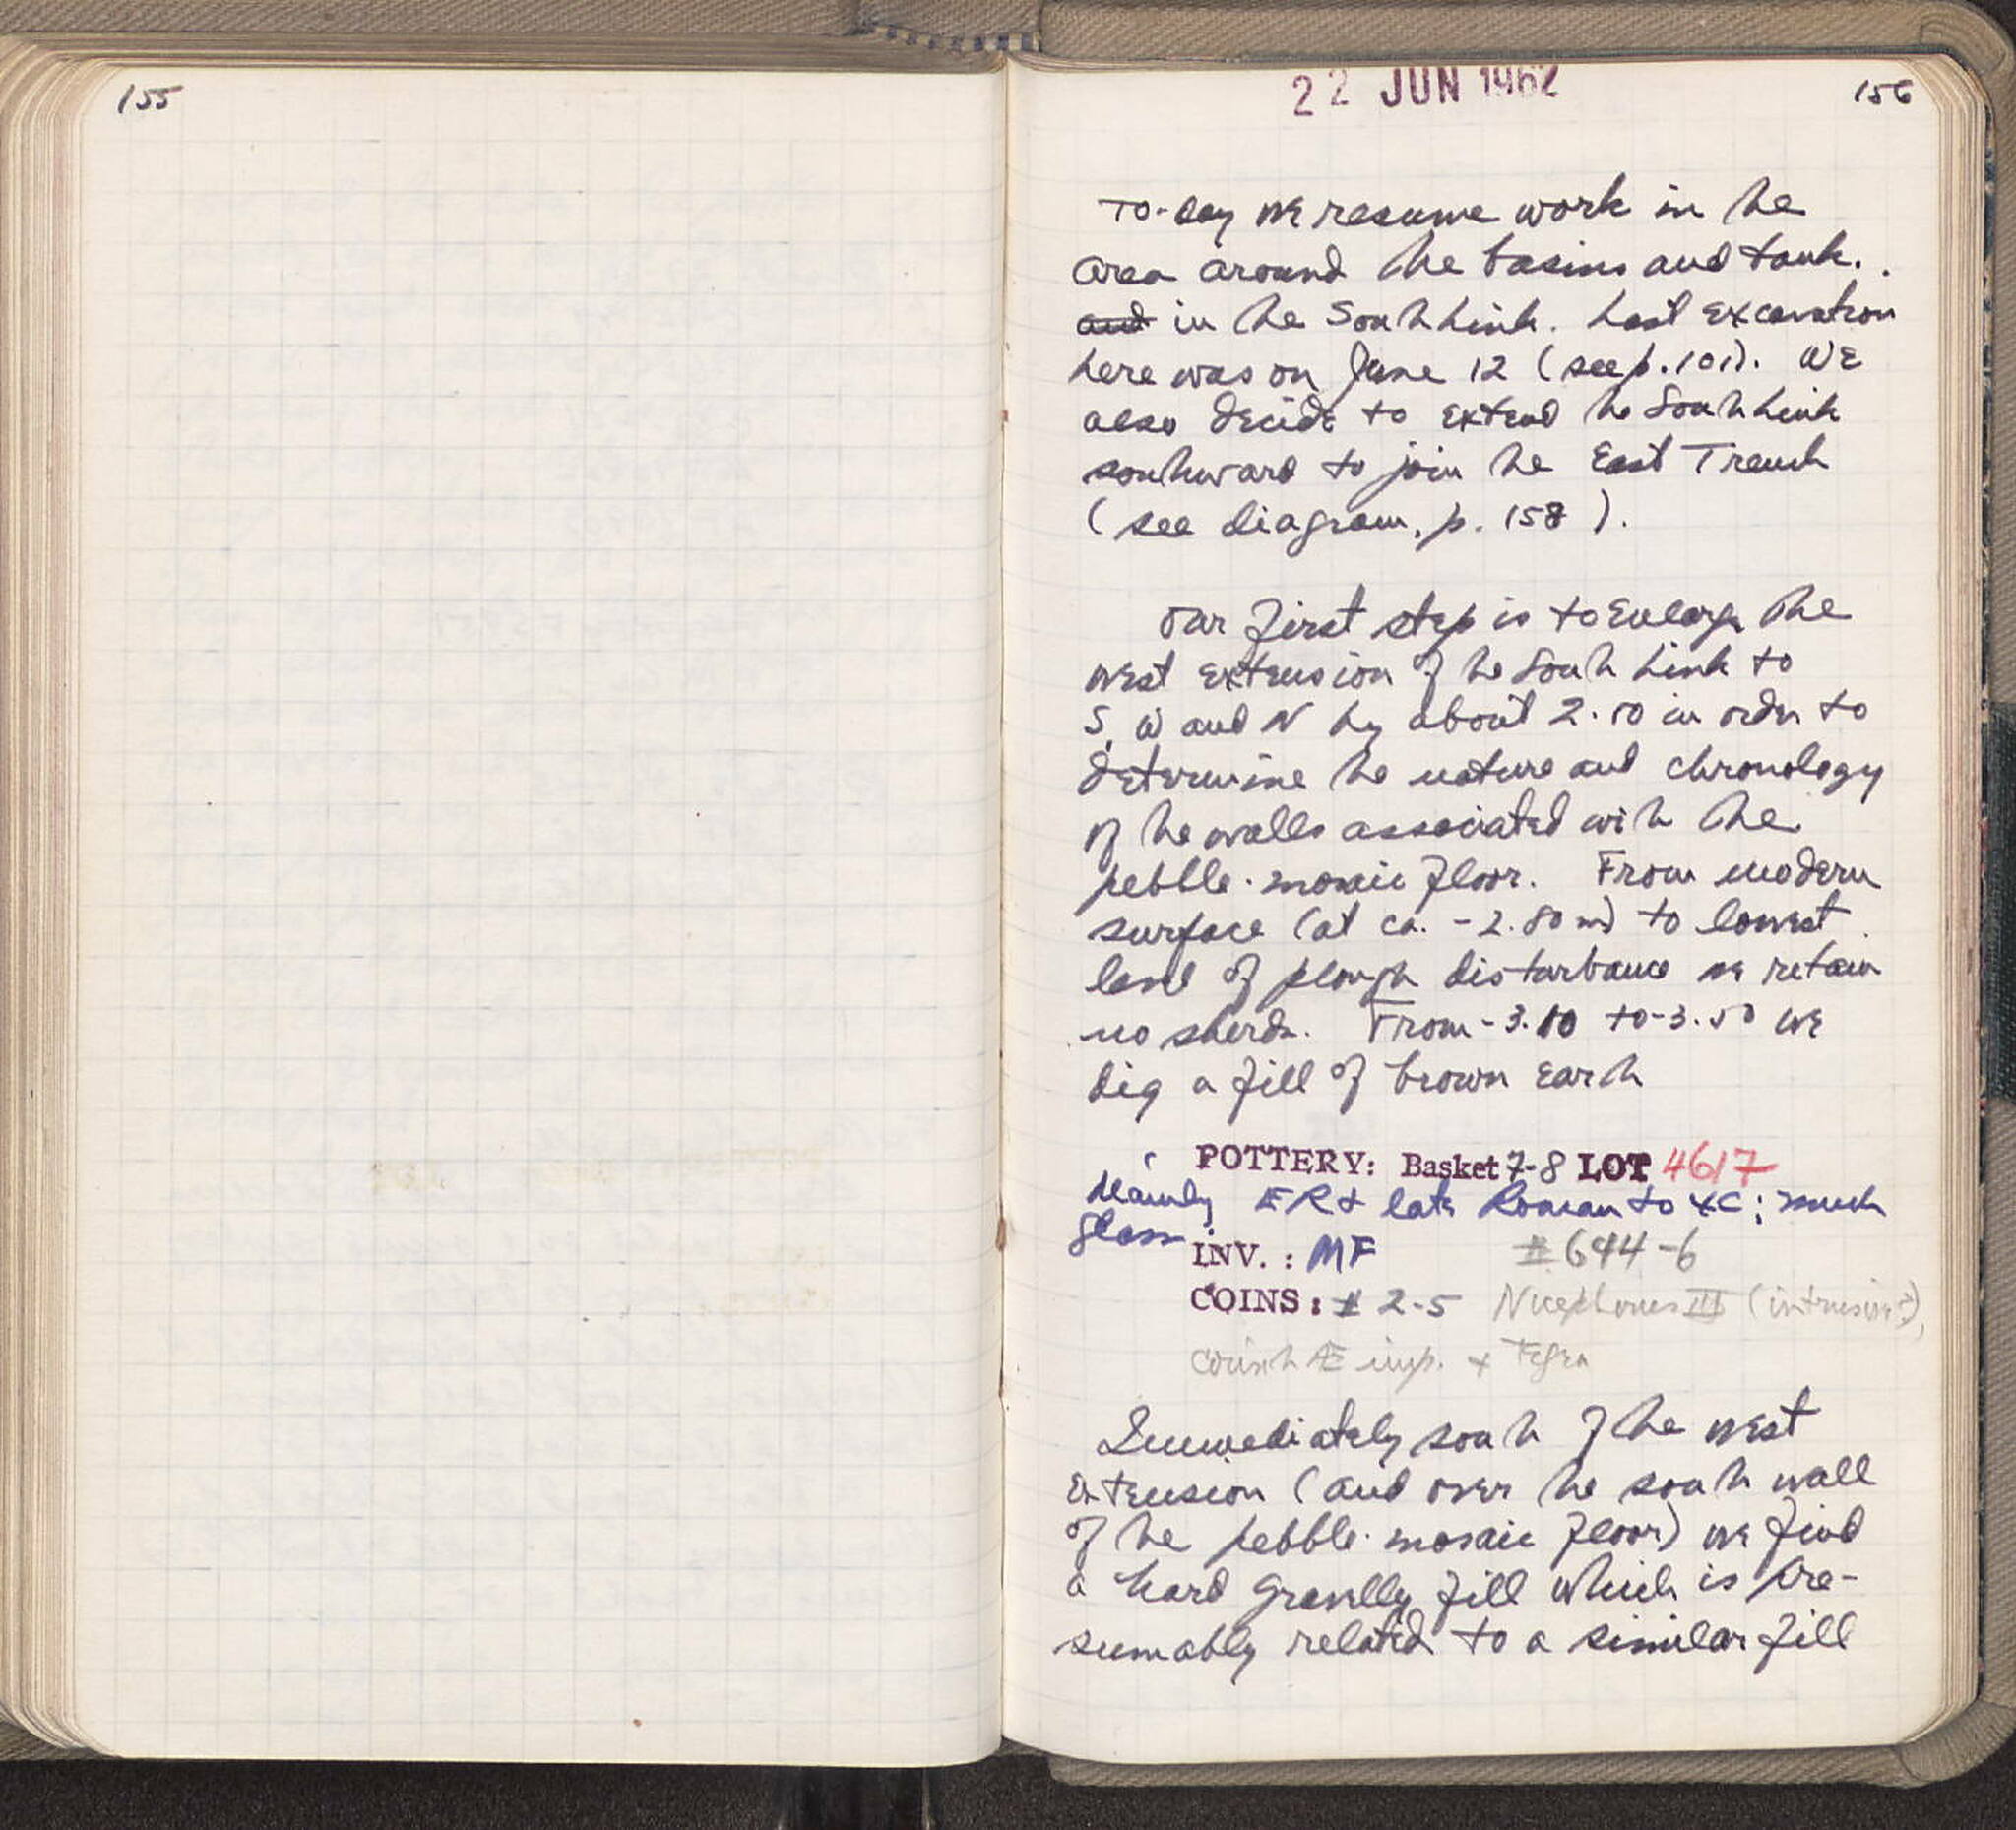 155
22 JUN 1962
156
To-day we resume work in the
area around the basins and tank.
and in the South Link. Last excavation
here was on June 12 (see p. 101). We
also decide to extend the South Link
southward to join the East Trench
(see diagram, p. 158).
Our first step is to enlarge the
west extension of the South Link to
S, W and N by about 2.00 in order to
determine the nature and chronology
of the walls associated with the
pebble-mosaic floor. From modern
surface (at ca. -2.80 m) to lowest
level of plough disturbance we retain
no sherds. From -3.10 to -3.50 we
dig a fill of brown earth
POTTERY: Basket 7-8 LOT 4617
Mainly ER + late Roman to 4C; much
glass
INV.: MF # 694-6
COINS: # 2-5 Nicephorus III (intrusive?),
Corinth Æ imp. + Tegea
Immediately south of the west
extension (and over the south wall
of the pebble-mosaic floor) we find
a hard gravelly fill which is pre-
sumably related to a similar fill